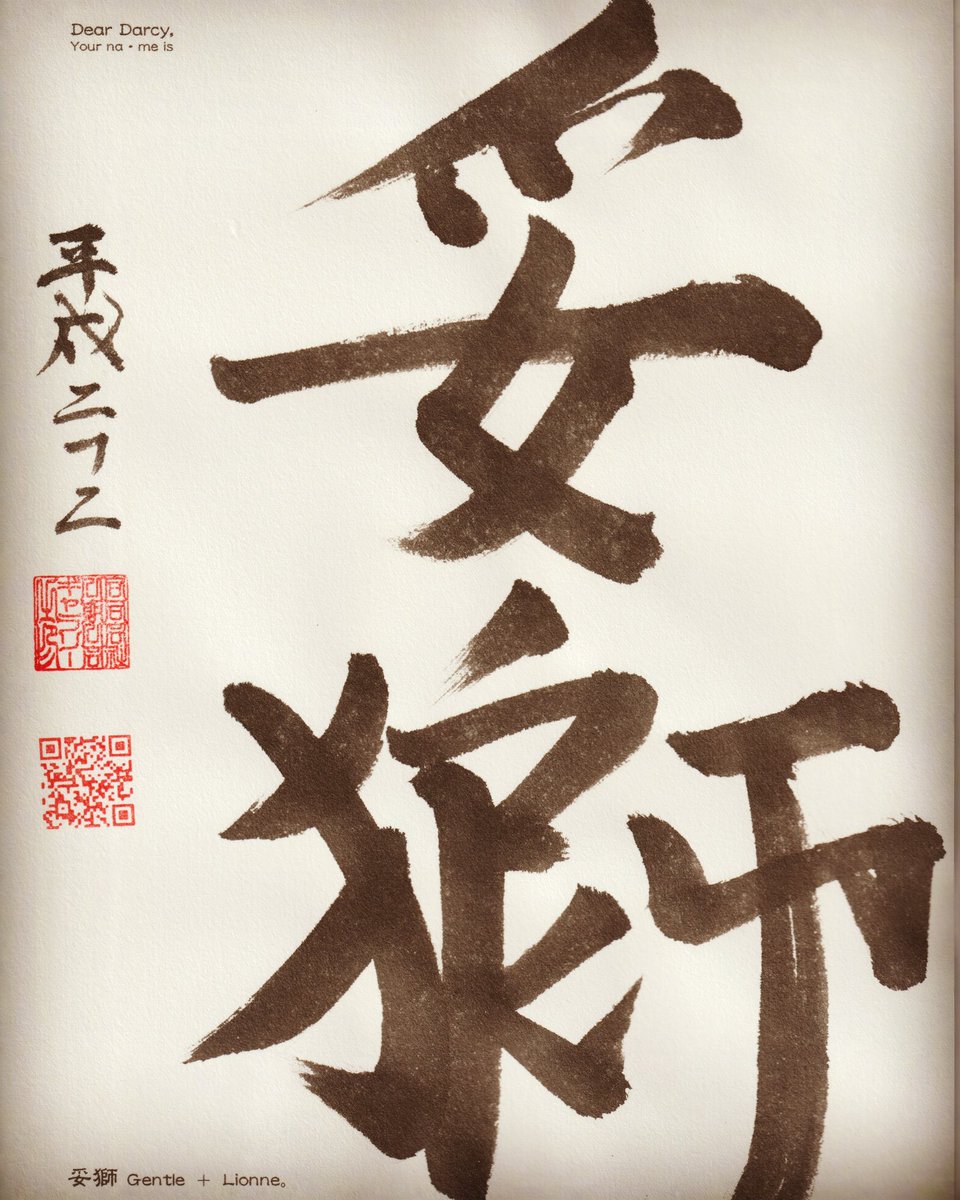 Dear Darcy,
Your na・me is
妥獅
平成二十二
妥獅 Gentle + Lionne。